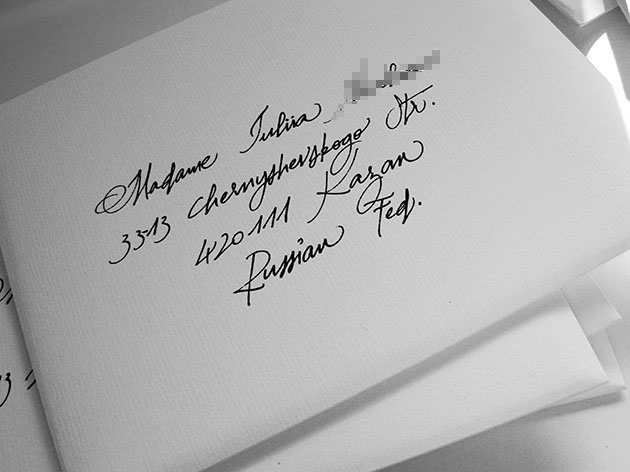 Madame Iuliia
33-13 Chernyshevskogo Str.
420111 Kazan
Russian Fed.